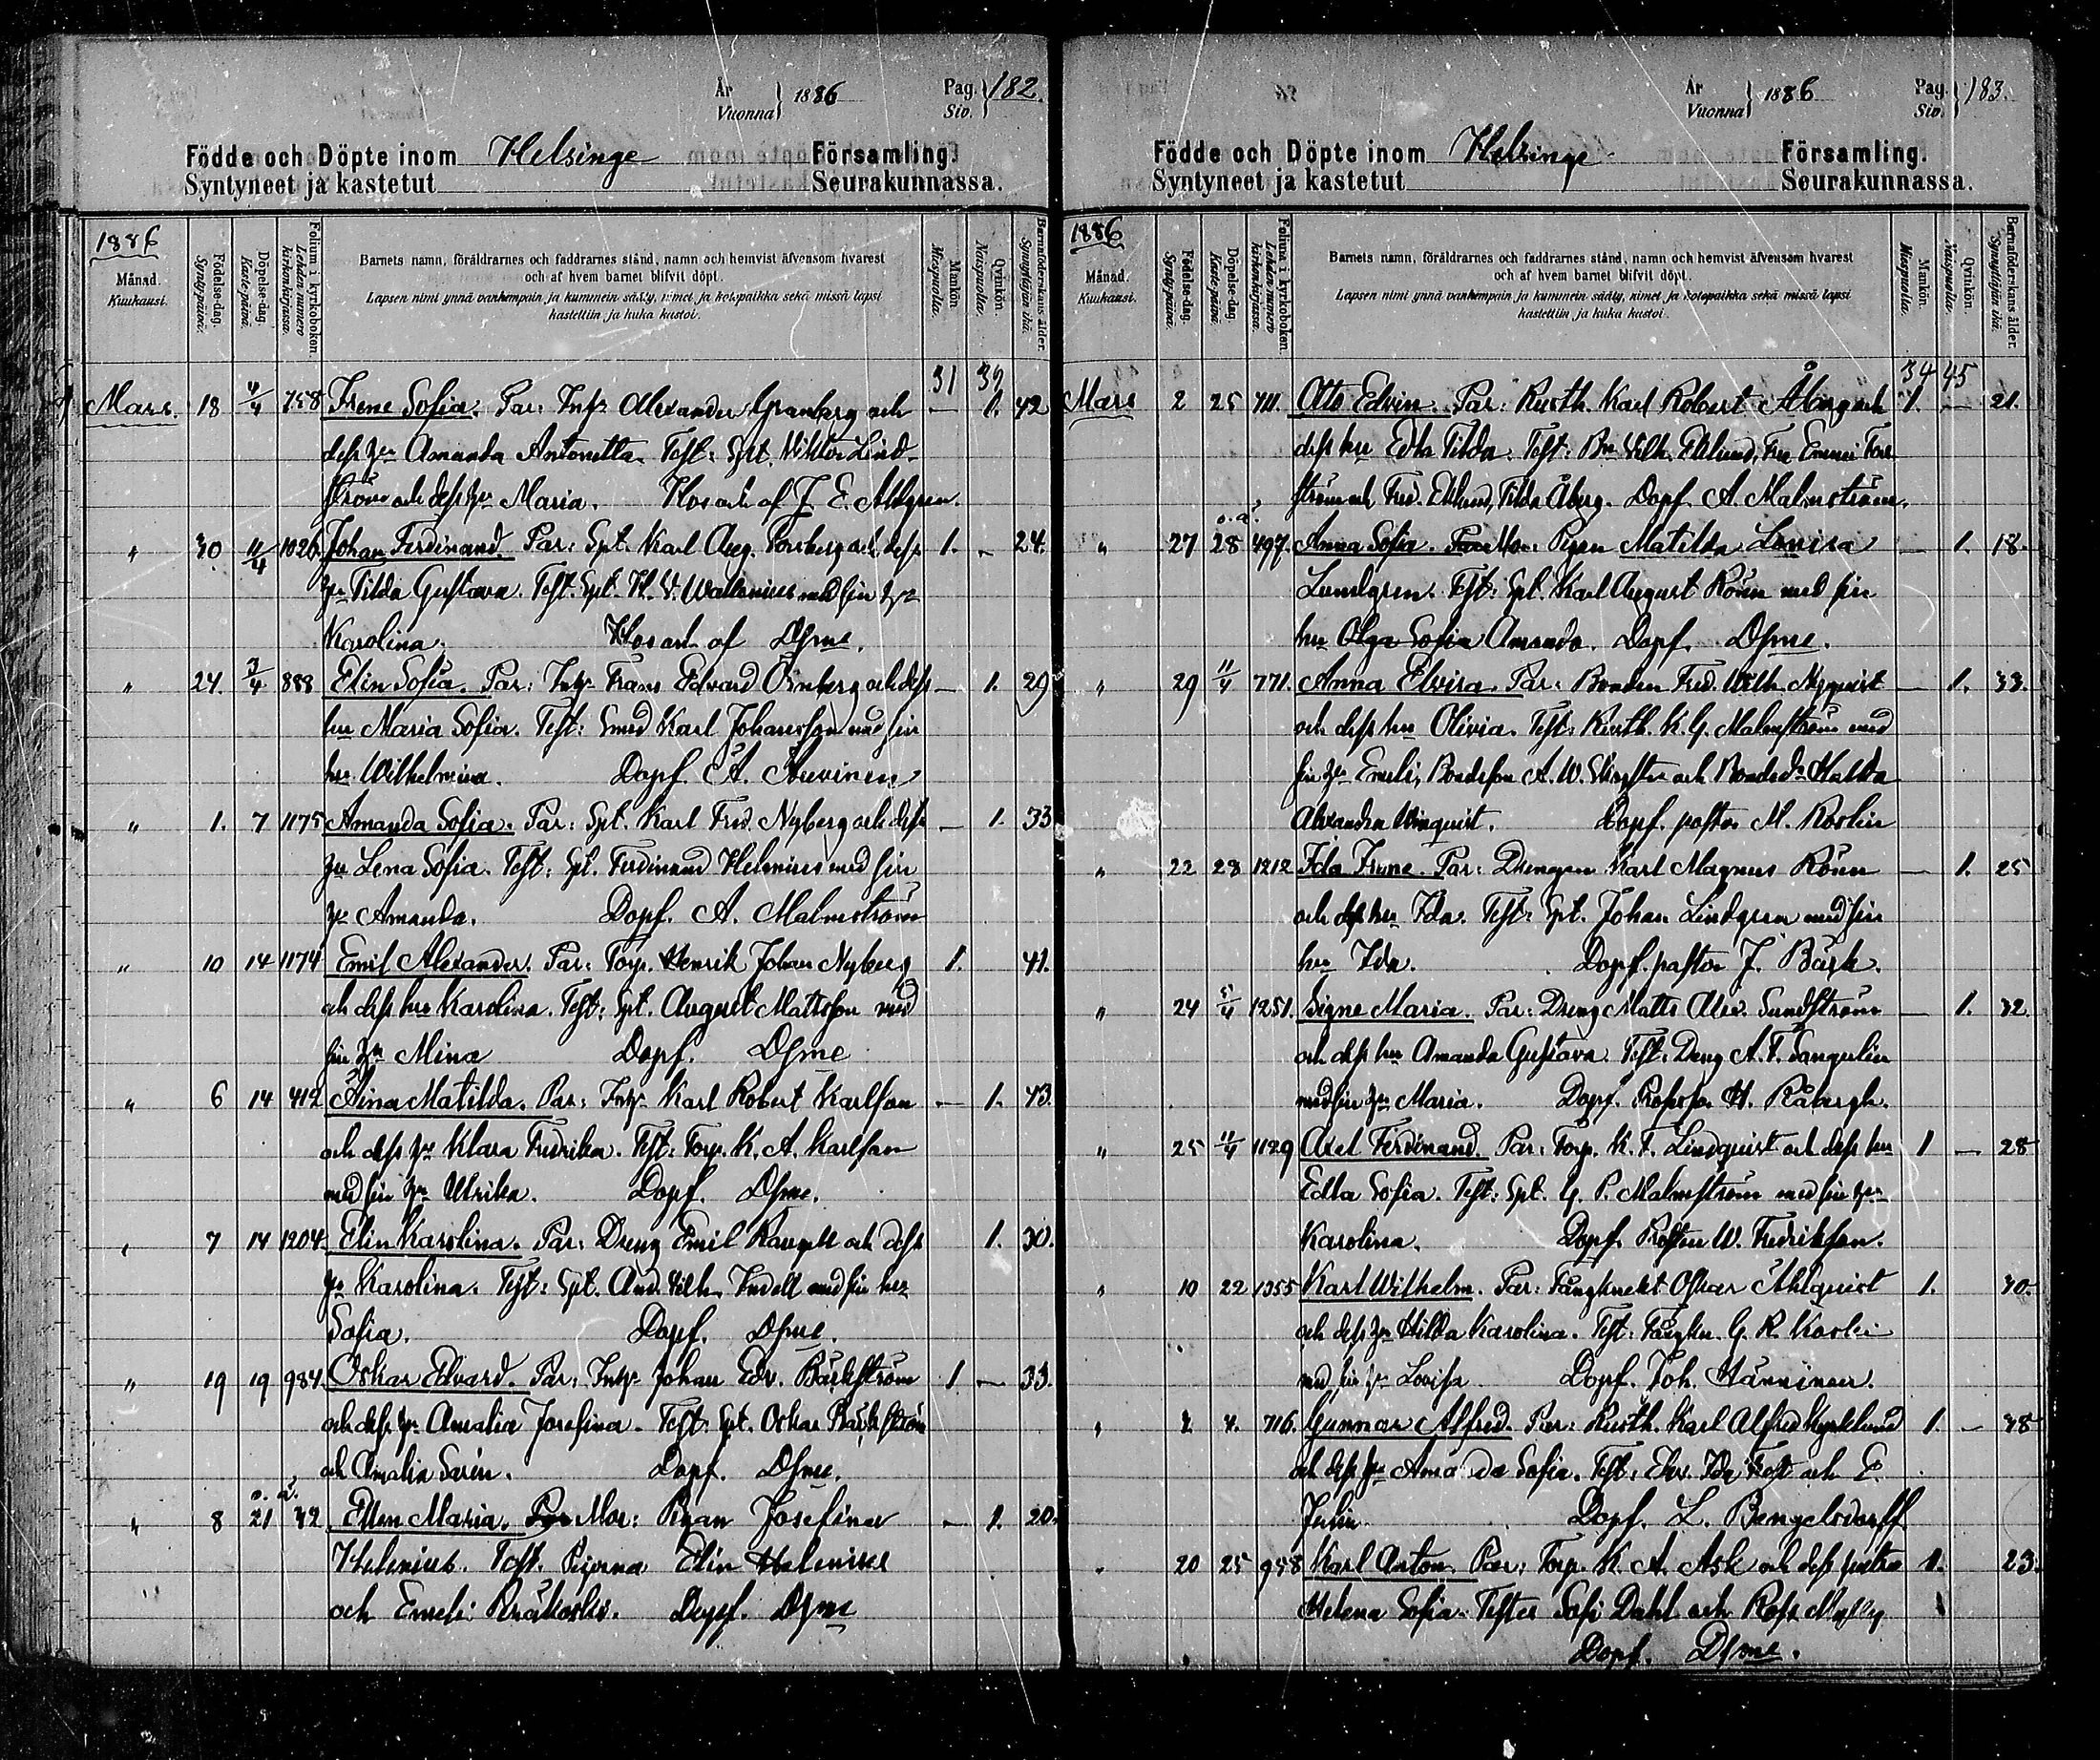 År 1886 Pag. 182.
Vuonna Siv.
Födde och Döpte inom Helsinge Församling.
Syntyneet ja kastetut Seurakunnassa.
1886
Månad. Kuukausi.
Födelse-dag. Synty-päivä.
Döpelse-dag. Kaste-päivä.
Folium i kyrkoboken. Lehden numero kirkonkirjassa.
Barnets namn, föräldrarnes och faddrarnes stånd, namn och hemvist äfvensom hvarest
och af hvem barnet blifvit döpt.
Lapsen nimi ynnä vanhempain ja kummein sääty, nimet ja kotopaikka sekä missä lapsi
kastettiin ja kuka kastoi.
Mankön. Miespuolia.
Qvinkön. Naispuolia.
Barnaföderskans ålder. Synnyttäjän ikä.
31 39
Mars. 18 4/4 758 Irene Sofia. Par: Inhs Alexander Granberg och — 1. 42
dess hu Amanda Antonetta. Test: Spt. Viktor Lind-
ström och dess hu Maria. Hos och af J. E. Ahlgren.
" 30 11/4 1026 Johan Ferdinand. Par: Spt. Karl Aug. Forsberg och dess 1. - 24.
hu Tilda Gustava. Test. Spt. K. V. Wallenius med sin hu
Karolina. Hos och af Dsme.
" 24 3/4 888 Elin Sofia. Par: Inhs Frans Edvard Örnberg och dess — 1. 29
hu Maria Sofia. Test: Smed Karl Johansson med sin
hu Wilhelmina. Dopf. A. Auvinen
" 1. 7 1175 Amanda Sofia. Par: Spt. Karl Fred. Nyberg och dess — 1. 33
hu Lena Sofia. Test: Spt. Ferdinand Helenius med sin
hu Amanda. Dopf. A. Malmström
" 10 14 1174 Emil Alexander. Par: Torp. Henrik Johan Nyberg 1. 41.
och dess hu Karolina. Test: Spt. August Mattsson med
sin hu Mina Dopf. Dsme
" 6 14 412 Aina Matilda. Par: Inhs Karl Robert Karlsson — 1. 43.
och dess hu Klara Fredrika. Test: Torp. K. A. Karlsson
med sin hu Ulrika. Dopf. Dsme.
" 7 14 1204 Elin Karolina. Par: Dreng Emil Rangell och dess 1. 30.
hu Karolina. Test: Spt. And. Vilh. Indell med sin hu
Sofia. Dopf. Dsme.
" 19 19 984 Oskar Edvard. Par: Inhs Johan Edv. Bäckström 1 — 33.
och dess hu Amalia Josefina. Test: Spt. Oskar Bäckström
och Amalia Sarin. Dopf. Dsme.
o. ä.
" 8 21 42 Ellen Maria. Par Mor: Pigan Josefina — 1. 20.
Helenius. Test. Pigorna Elin Helenius
och Emeli Dopf. Dsme
År 1886 Pag. 183.
Vuonna Siv.
Födde och Döpte inom Helsinge Församling.
Syntyneet ja kastetut Seurakunnassa.
1886
Månad. Kuukausi.
Födelse-dag. Synty-päivä.
Döpelse-dag. Kaste-päivä.
Folium i kyrkoboken. Lehden numero kirkonkirjassa.
Barnets namn, föräldrarnes och faddrarnes stånd, namn och hemvist äfvensom hvarest
och af hvem barnet blifvit döpt.
Lapsen nimi ynnä vanhempain ja kummein sääty, nimet ja kotopaikka sekä missä lapsi
kastettiin ja kuka kastoi.
Mankön. Miespuolia.
Qvinkön. Naispuolia.
Barnaföderskans ålder. Synnyttäjän ikä.
34 45
Mars 2 25 711. Otto Edvin. Par: Rusth. Karl Robert Åberg och 1. — 21.
dess hu Edla Tilda. Test: Bn Vilh. Eklund, Fru Emmi Fors-
ström och Fred. Eklund, Tilda Åberg. Dopf. A. Malmström.
o. ä.
" 27 28 497. Anna Sofia. Par Mor: Pigan Matilda Lovisa — 1. 18.
Lundgren. Test: Spt. Karl August Rönn med sin
hu Olga Sofia Amanda. Dopf. Dsme.
" 29 11/4 771. Anna Elvira. Par: Bonden Fred. Wilh. Nyqvist — 1. 33.
och dess hu Olivia. Test: Rusth. K. G. Malmström med
sin hu Emeli, Bondeson A. W. och Bonded. Hulda
Alexandra Winquist. Dopf. pastor M. Roslin
" 22 28 1212 Ida Irene. Par: Drengen Karl Magnus Rönn — 1. 25
och dess hu Ida. Test: Spt. Johan Lindgren med sin
hu Ida. Dopf. pastor J. Bäck.
" 24 5/4 1251. Signe Maria. Par: Dreng Matts Alex. Sundström — 1. 32
och dess hu Amanda Gustava. Test: Dreng A. F. Sangelin
med sin hu Maria. Dopf. Professor H. Råbergh.
" 25 11/4 1129 Axel Ferdinand. Par: Torp. K. F. Lindquist och dess hu 1 — 28
Edla Sofia. Test: Spt. G. P. Malmström med sin hu
Karolina. Dopf. W. Fredriksson.
" 10 22 1355 Karl Wilhelm. Par: Fångknekt Oskar Ahlquist 1. 30.
och dess hu Hilda Karolina. Test: Fångkn. G. R. Koski
med sin hu Lovisa Dopf. Joh. Hänninen.
" 2 4. 716. Gunnar Alfred. Par: Rusth. Karl Alfred Kyrklund 1. — 38
och dess hu Amanda Sofia. Test: Ida och E.
Julin. Dopf. L. Bengelsdorff
" 20 25 958 Karl Anton. Par: Torp. K. A. Ask och dess hustru 1. 23.
Helena Sofia. Testes Sofi Dahl och
Dopf. Dsme.